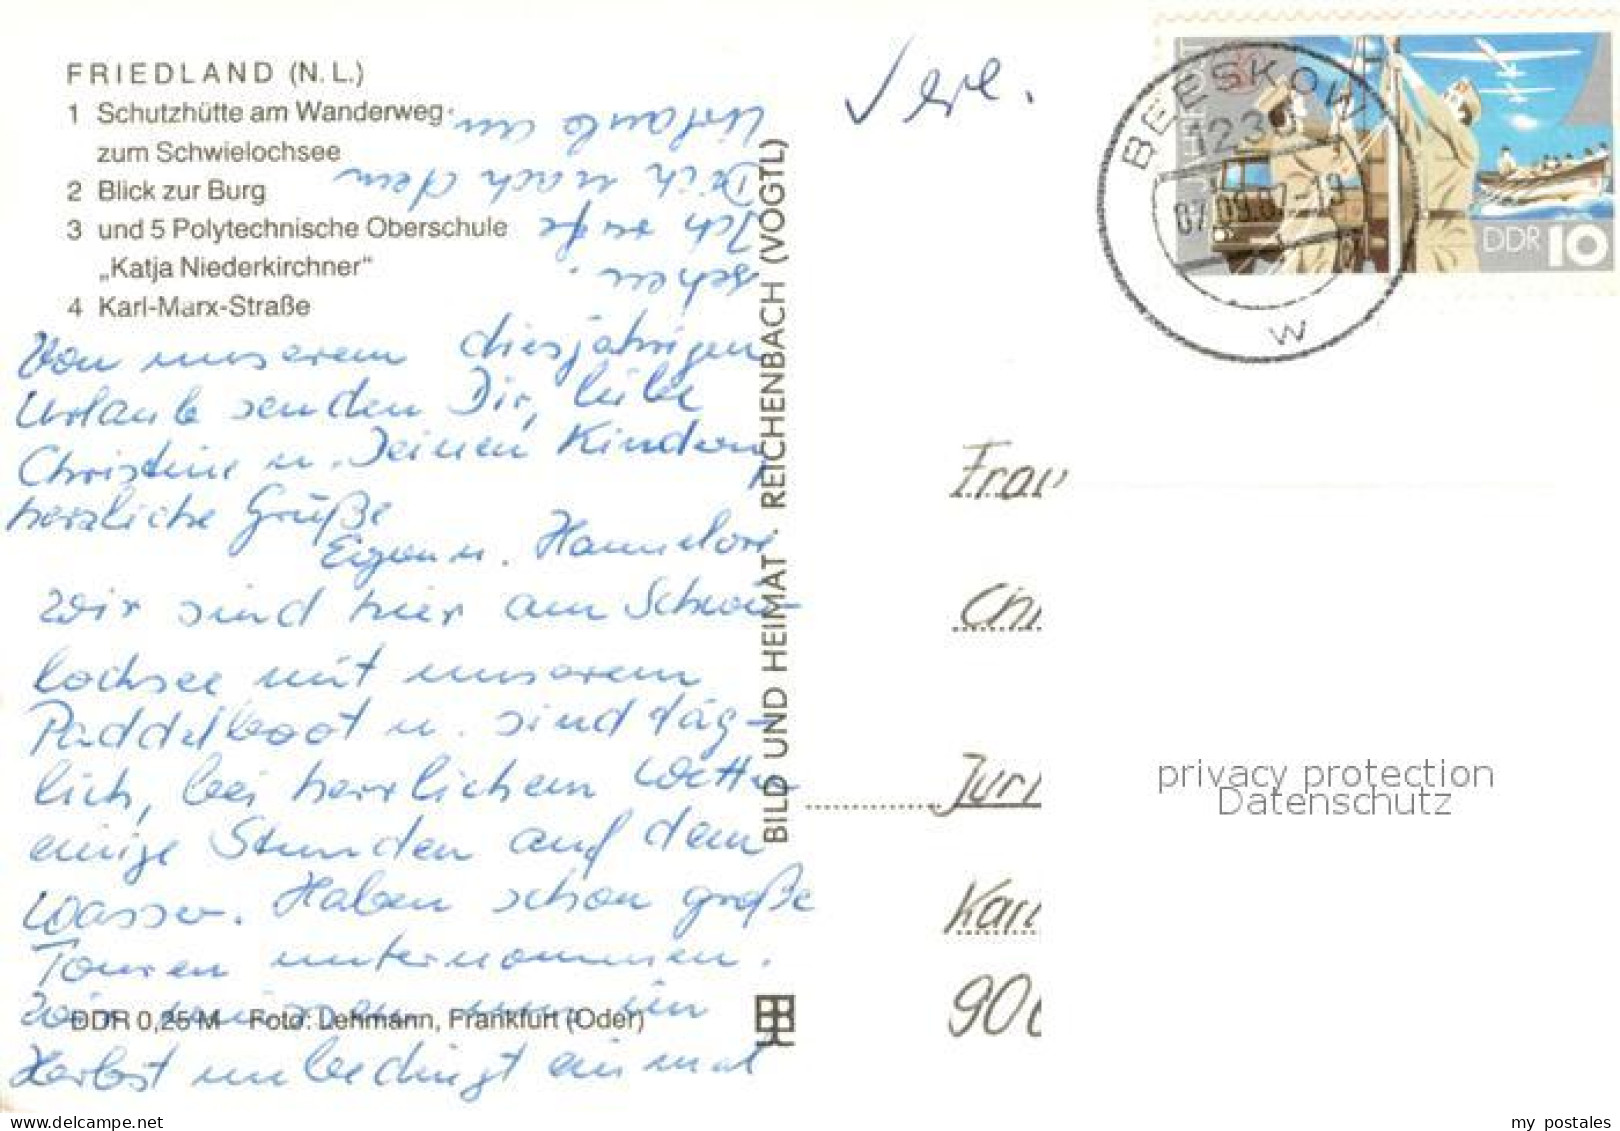 FRIEDLAND (N.L.)
1 Schutzhütte am Wanderweg
zum Schwielochsee
2 Blick zur Burg
3 und 5 Polytechnische Oberschule
„Katja Niederkirchner“
4 Karl-Marx-Straße
Von unserem diesjährigen
Urlaub senden Dir, liebe
Christine u. Deinen Kindern
herzliche Grüße
u. Hannelore
Wir sind hier am Schwie-
lochsee mit unserem
Paddelboot u. sind täg-
lich, bei herrlichem Wetter
einige Stunden auf dem
Wasser. Haben schon große
Touren unternommen.
Wir müssen uns im
Herbst unbedingt einmal
sehen.
Ich rufe
Dich nach dem
Urlaub an.
DDR 0,25 M Foto: Lehmann, Frankfurt (Oder)
BILD UND HEIMAT · REICHENBACH (VOGTL)
BEESKOW
1230
w
DDR 10
Frau
Karl
privacy protection
Datenschutz
www.ansichtskarten-center.de
my postales